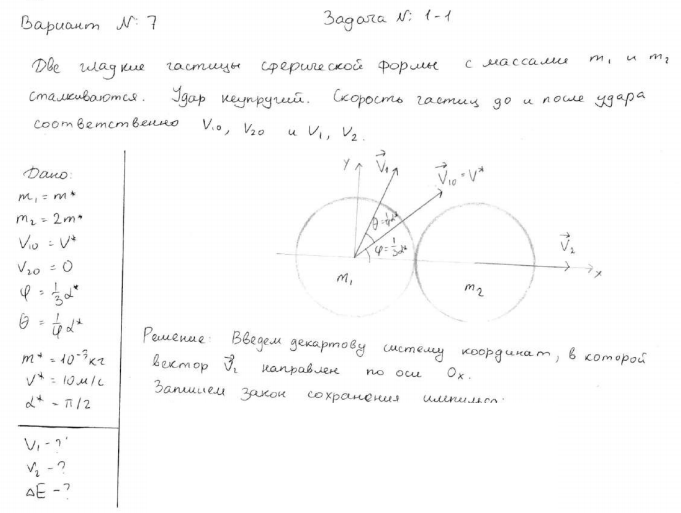 Вариант №: 7
Задача №: 1-1
Две гладкие частицы сферической формы с массами m₁ и m₂
сталкиваются. Удар неупругий. Скорость частиц до и после удара
соответственно V₁₀, V₂₀ и V₁, V₂.
Дано:
m₁ = m*
m₂ = 2m*
V₁₀ = V*
V₂₀ = 0
φ = 1/3 α*
θ = 1/4 α*
m* = 10⁻³ кг
V* = 10 м/с
α* = π/2
V₁ - ?
V₂ - ?
ΔE - ?
Y
V⃗₁
V⃗₁₀ = V*
φ = 1/3 α*
V⃗₂
x
m₁
m₂
Решение: Введем декартову систему координат, в которой
вектор V⃗₂ направлен по оси Ox.
Запишем закон сохранения импульса: